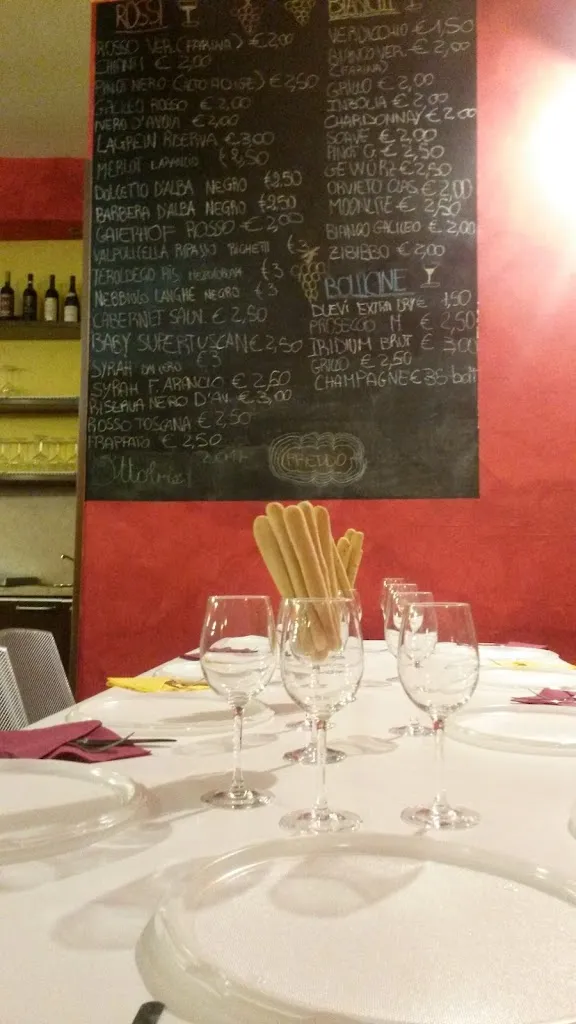 ROSSI
ROSSO VER. (FARINA) € 2,00
CHIANTI € 2,00
PINOT NERO (ALTO ADIGE) € 2,50
GALILEO ROSSO € 2,00
NERO D'AVOLA € 2,00
LAGREIN RISERVA € 3,00
MERLOT € 2,50
DOLCETTO D'ALBA NEGRO €2.50
BARBERA D'ALBA NEGRO €2.50
GAIERHOF ROSSO € 2,00
VALPOLICELLA RIPASSO RIGHETTI €3
TEROLDEGO RIS. €3
NEBBIOLO LANGHE NEGRO €3
CABERNET SAUV. € 2.50
BABY SUPERTUSCAN € 2,50
SYRAH €3
SYRAH F. ARANCIO € 2,50
RISERVA NERO D'AV. € 3,00
ROSSO TOSCANA € 2,50
FRAPPATO € 2,50
BIANCHI
VERDICCHIO € 1,50
BIANCO VER. € 2,00
(FARINA)
GRILLO € 2,00
INZOLIA € 2,00
CHARDONNAY € 2,00
SOAVE € 2,00
PINOT G. € 2,50
GEWÜRZ € 2,50
ORVIETO CLAS. € 2,00
MOONLITE € 2,50
BIANCO GALILEO € 2,00
ZIBIBBO € 2,00
BOLLICINE
DUEVI EXTRA DRY € 1,50
PROSECCO M € 2,50
IRIDIUM BRUT € 3,00
GRILLO € 2.50
CHAMPAGNE € 35 bott